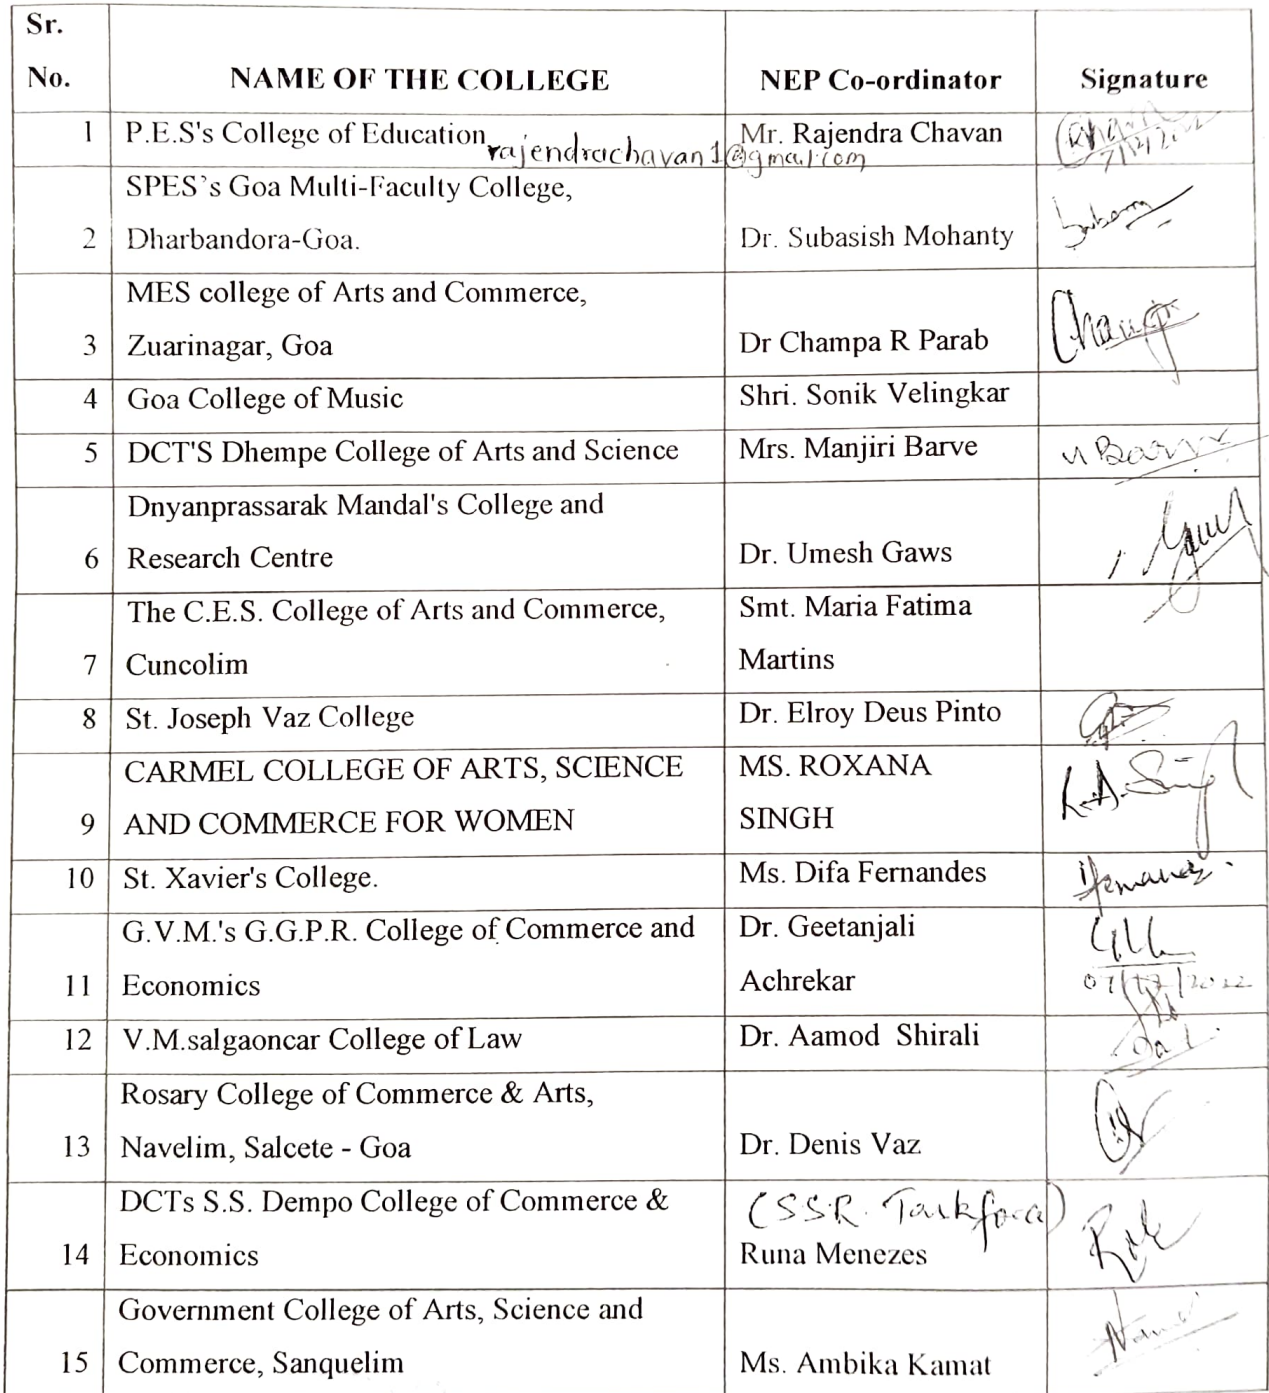 Sr.
No. NAME OF THE COLLEGE NEP Co-ordinator Signature
1 P.E.S's College of Education Mr. Rajendra Chavan
rajendrachavan1@gmail.com
7/12/2022
SPES's Goa Multi-Faculty College,
2 Dharbandora-Goa. Dr. Subasish Mohanty
MES college of Arts and Commerce,
3 Zuarinagar, Goa Dr Champa R Parab
4 Goa College of Music Shri. Sonik Velingkar
5 DCT'S Dhempe College of Arts and Science Mrs. Manjiri Barve
Dnyanprassarak Mandal's College and
6 Research Centre Dr. Umesh Gaws
The C.E.S. College of Arts and Commerce, Smt. Maria Fatima
7 Cuncolim Martins
8 St. Joseph Vaz College Dr. Elroy Deus Pinto
CARMEL COLLEGE OF ARTS, SCIENCE MS. ROXANA
9 AND COMMERCE FOR WOMEN SINGH
10 St. Xavier's College. Ms. Difa Fernandes
G.V.M.'s G.G.P.R. College of Commerce and Dr. Geetanjali
11 Economics Achrekar 07/12/2022
12 V.M.salgaoncar College of Law Dr. Aamod Shirali
Rosary College of Commerce & Arts,
13 Navelim, Salcete - Goa Dr. Denis Vaz
DCTs S.S. Dempo College of Commerce & (S.S.R. Taskforce)
14 Economics Runa Menezes
Government College of Arts, Science and
15 Commerce, Sanquelim Ms. Ambika Kamat